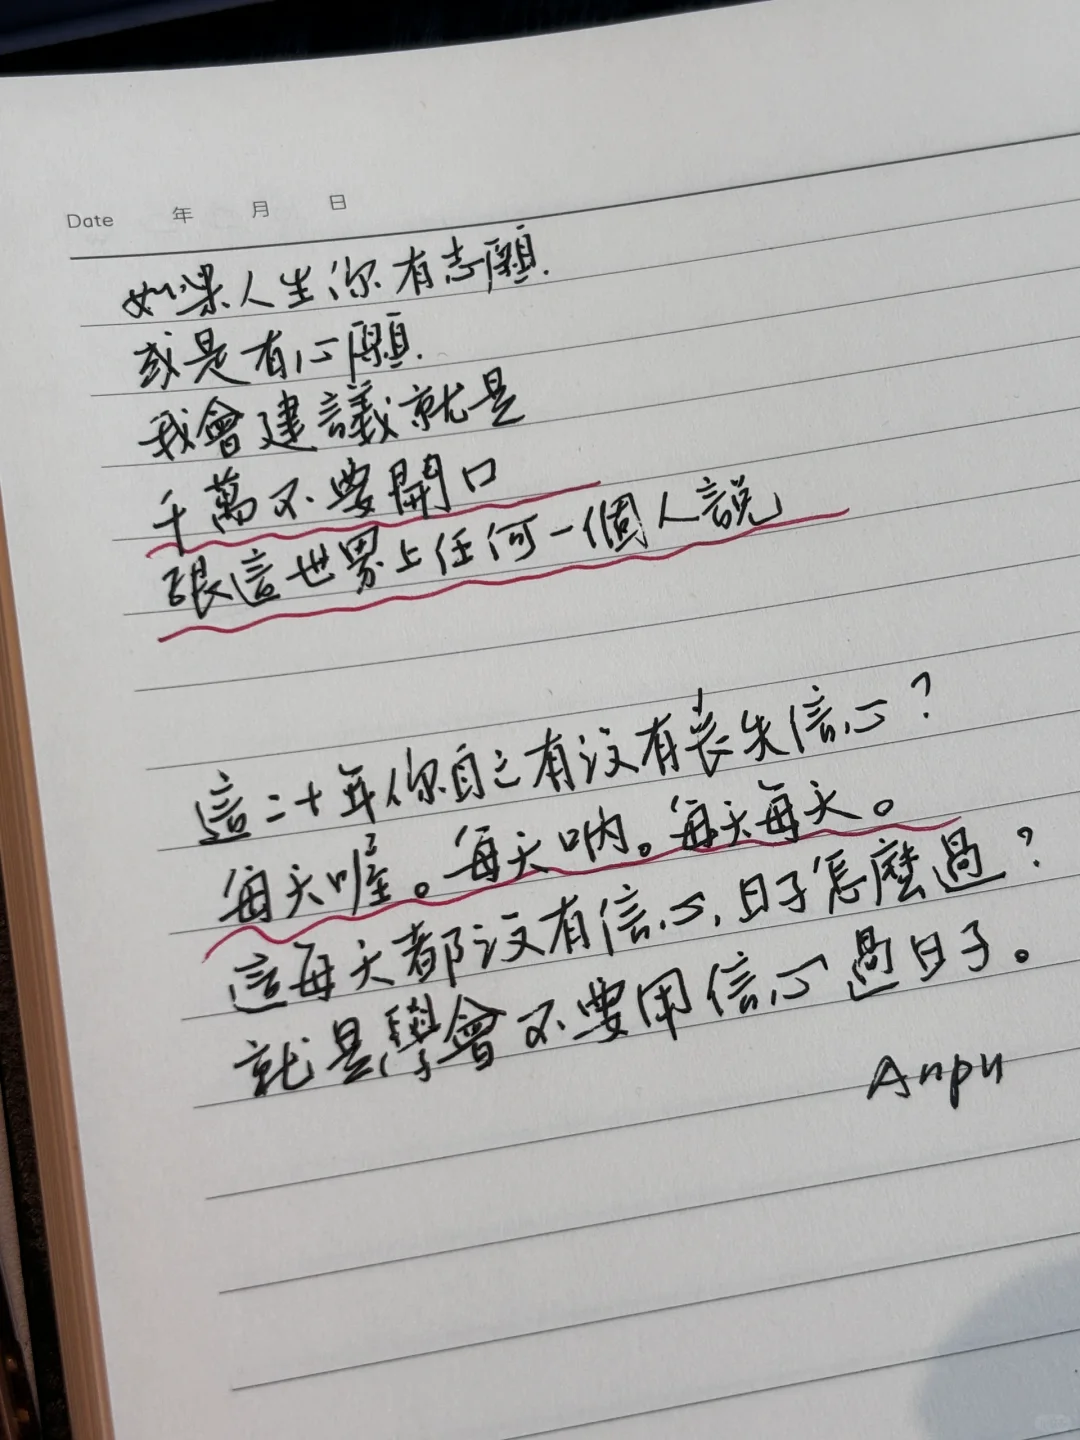 Date 年 月 日
如果人生你有志願.
或是有心願.
我會建議就是
千萬不要開口
跟這世界上任何一個人說
這二十年你自己有沒有喪失信心?
每天喔。每天吶。每天每天。
這每天都沒有信心,日子怎麼過?
就是學會不要用信心過日子。
Anpu